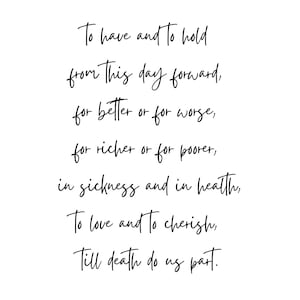 to have and to hold
from this day forward,
for better or for worse,
for richer or for poorer,
in sickness and in health,
to love and to cherish,
till death do us part.